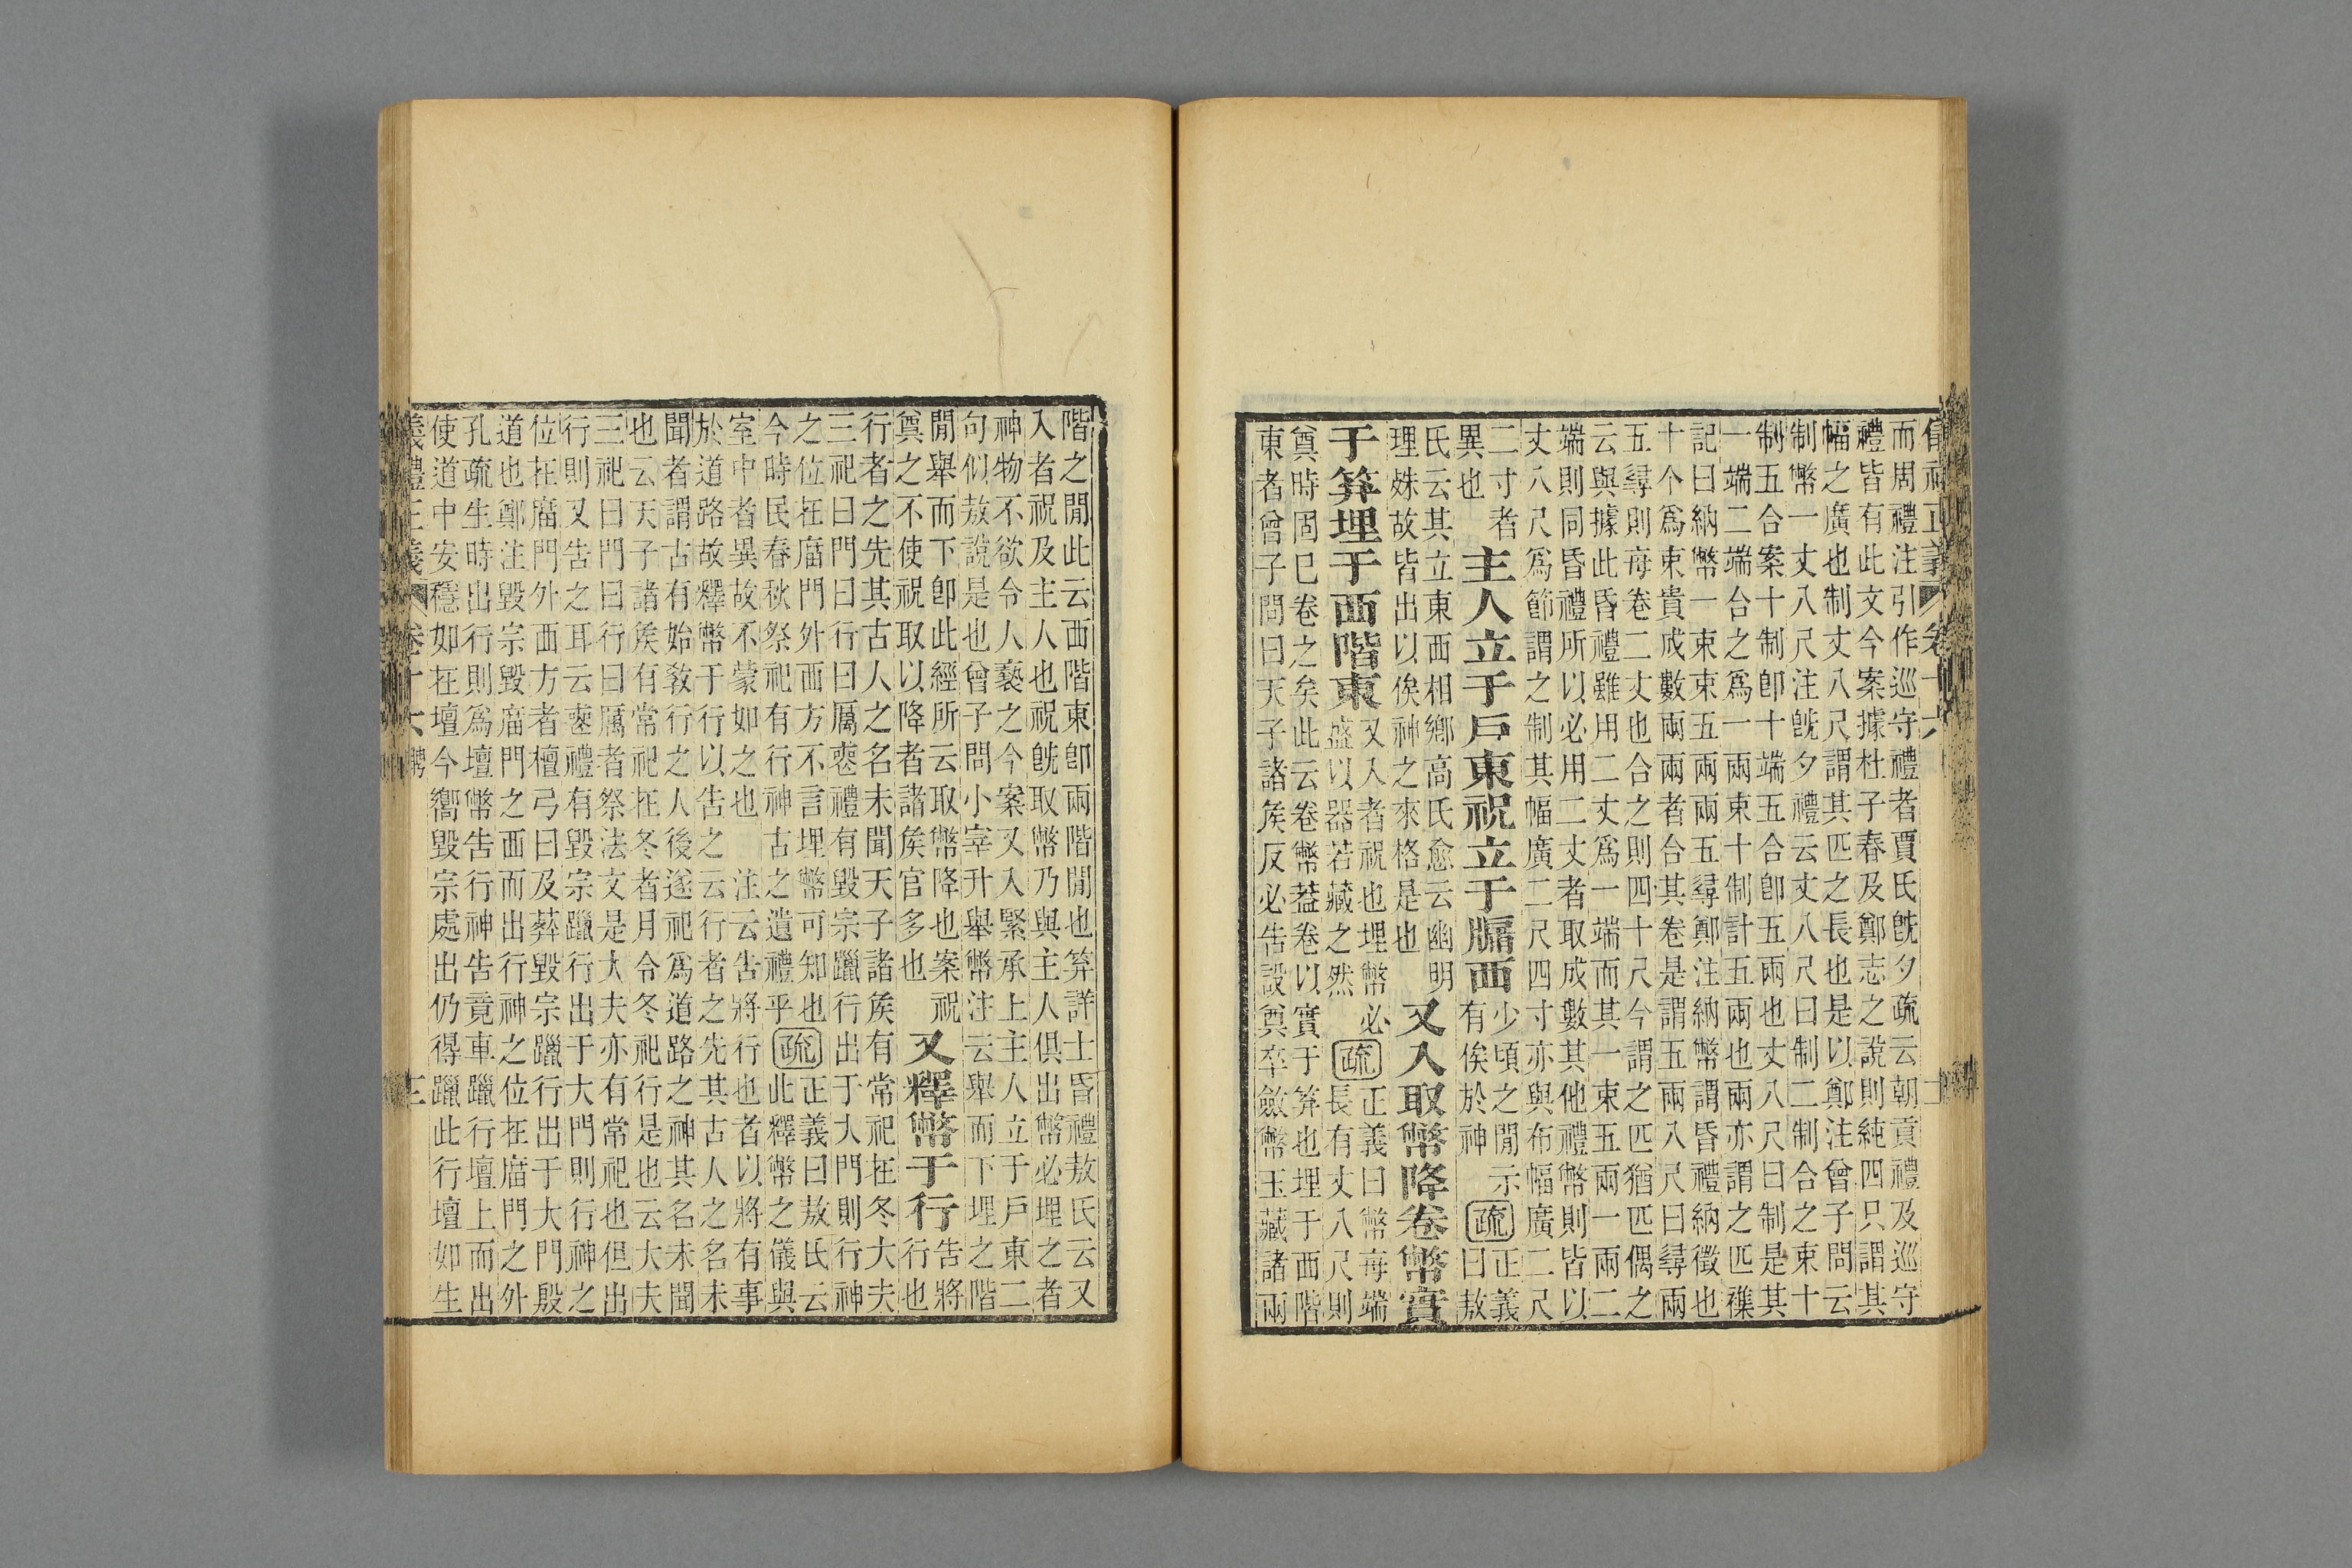 儀禮正義 卷十六 二
而周禮注引作巡守禮者賈氏旣夕疏云朝貢禮及巡守
禮皆有此文今案據杜子春及鄭志之說則純四只謂其
幅之廣也制丈八尺謂其匹之長也是以鄭注曾子問云
制幣一丈八尺注旣夕禮云丈八尺曰制二制合之束十
制五合案十制卽十端五合卽五兩也丈八尺曰制是其
一端二端合之爲一兩束十制計五兩也兩亦謂之匹襍
記曰納幣一束束五兩兩五尋鄭注納幣謂昏禮納徵也
十个爲束貴成數兩兩者合其卷是謂五兩八尺曰尋兩
五尋則每卷二丈也合之則四十尺今謂之匹猶匹偶之
云與據此昏禮雖用二丈爲一端而其一束五兩一兩二
端則同昏禮所以必用二丈者取成數其他禮幣則皆以
丈八尺爲節謂之制其幅廣二尺四寸亦與布幅廣二尺
二寸者
異也
主人立于戶東祝立于牖西
少頃之閒示
有俟於神
疏
正義
曰敖
氏云其立東西相鄉高氏愈云幽明
理殊故皆出以俟神之來格是也
又入取幣降卷幣實
于笲埋于西階東
又入者祝也埋幣必
盛以器若藏之然
疏
正義曰幣每端
長有丈八尺則
奠時固巳卷之矣此云卷幣葢卷以實于笲也埋于西階
東者曾子問曰天子諸矦反必告設奠卒斂幣玉藏諸兩
階之閒此云西階東卽兩階閒也笲詳士昏禮敖氏云又
入者祝及主人也祝旣取幣乃與主人俱出幣必埋之者
神物不欲令人褻之今案又入緊承上主人立于戶東二
句似敖說是也曾子問小宰升舉幣注云舉而下埋之階
閒舉而下卽此經所云取幣降也案祝
奠之不使祝取以降者諸矦官多也
又釋幣于行
告將
行也
行者之先其古人之名未聞天子諸矦有常祀在冬大夫
三祀曰門曰行曰厲喪禮有毀宗躐行出于大門則行神
之位在廟門外西方不言埋幣可知也
今時民春秋祭祀有行神古之遺禮乎
疏
正義曰敖氏云
此釋幣之儀與
室中者異故不蒙如之也 注云告將行也者以將有事
於道路故釋幣于行以告之云行者之先其古人之名未
聞者謂古有始敎行之人後遂祀爲道路之神其名未聞
也云天子諸矦有常祀在冬者月令冬祀行是也云大夫
三祀曰門曰行曰厲者祭法文是大夫亦有常祀也但出
行則又告之耳云喪禮有毀宗躐行出于大門則行神之
位在廟門外西方者檀弓曰及葬毀宗躐行出于大門殷
道也鄭注毀宗毀廟門之西而出行神之位在廟門之外
孔疏生時出行則爲壇幣告行神告竟車躐行壇上而出
使道中安穩如在壇今嚮毀宗處出仍得躐此行壇如生
義禮正義 卷十六 聘 三